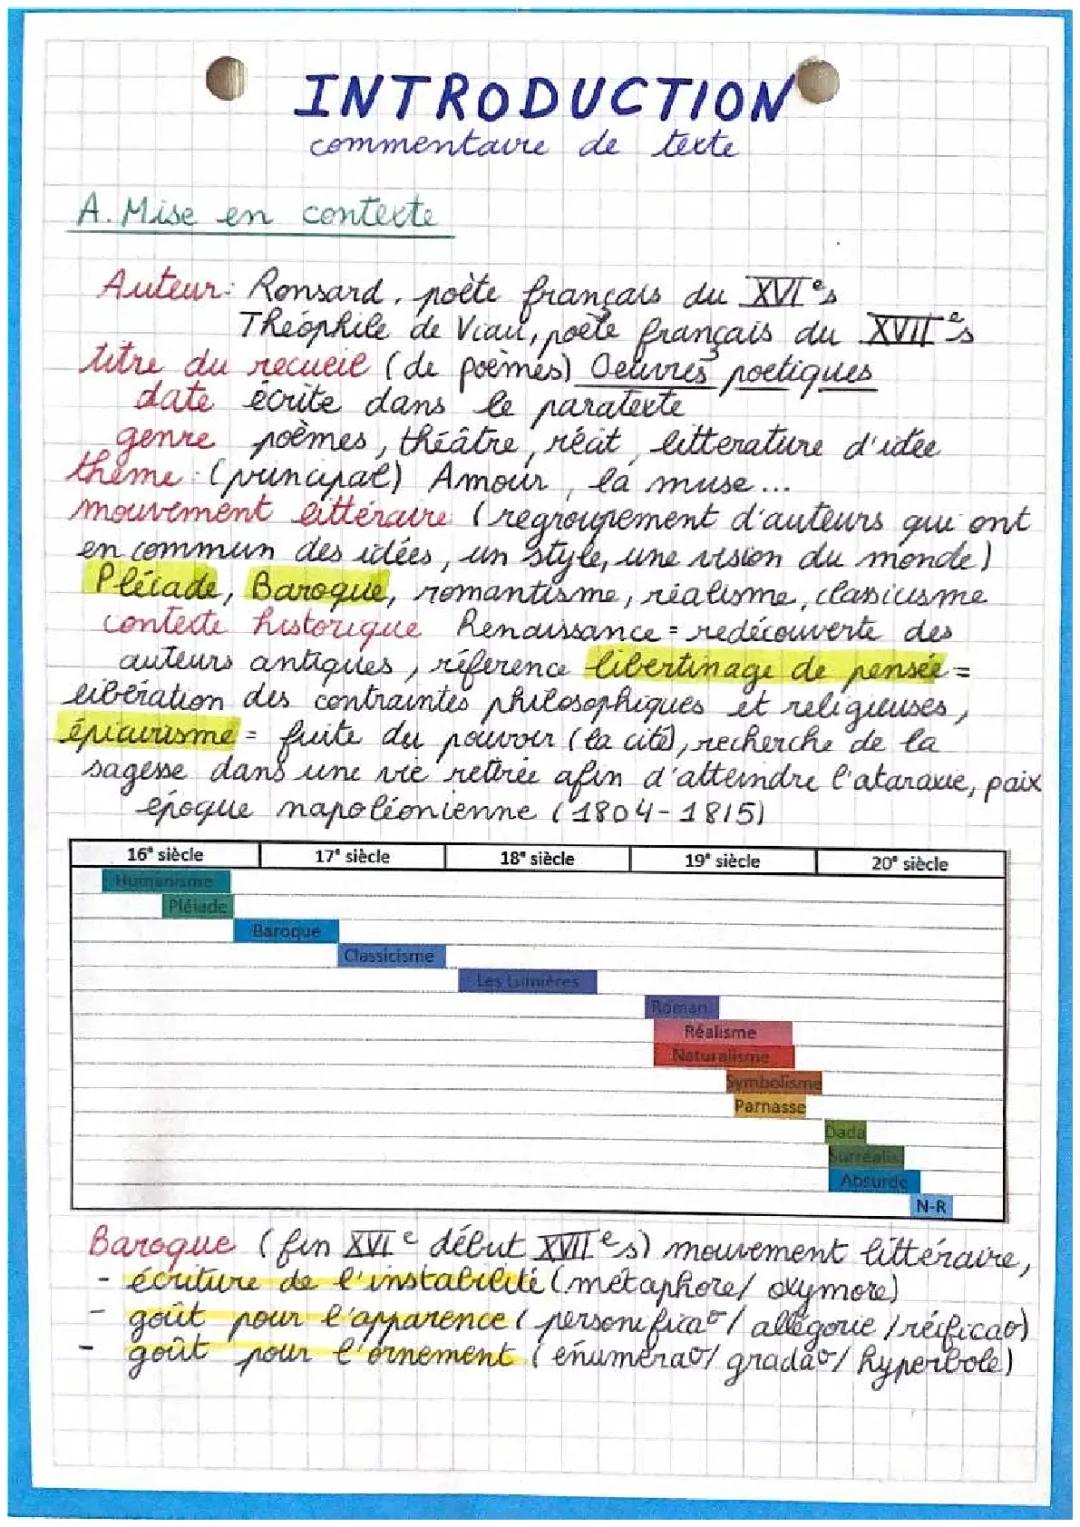 INTRODUCTION
commentaire de texte
A. Mise en contexte
Auteur: Ronsard, poète français du XVIᵉs
Théophile de Viau, poète français du XVIIᵉs
titre du recueil (de poèmes) Oeuvres poétiques
date écrite dans le paratexte
genre poèmes, théâtre, récit, litterature d'idée
thème: (principal) Amour, la muse...
mouvement littéraire (regroupement d'auteurs qui ont
en commun des idées, un style, une vision du monde)
Pléiade, Baroque, romantisme, réalisme, classicisme
contexte historique Renaissance = redécouverte des
auteurs antiques, réference libertinage de pensée =
libération des contraintes philosophiques et religieuses,
épicurisme = fuite du pouvoir (la cité), recherche de la
sagesse dans une vie retirée afin d'atteindre l'ataraxie, paix
époque napoléonienne (1804-1815)
16ᵉ siècle 17ᵉ siècle 18ᵉ siècle 19ᵉ siècle 20ᵉ siècle
Humanisme
Pléiade
Baroque
Classicisme
Les Lumières
Roman
Réalisme
Naturalisme
Symbolisme
Parnasse
Dada
Surréalis
Absurde
N-R
Baroque (fin XVIᵉ début XVIIᵉs) mouvement littéraire,
- écriture de l'instabilité (métaphore/ oxymore)
- goût pour l'apparence (personificaᵒ / allégorie / réificaᵒ)
- goût pour l'ornement (énuméraᵒ/ gradaᵒ/ hyperbole)